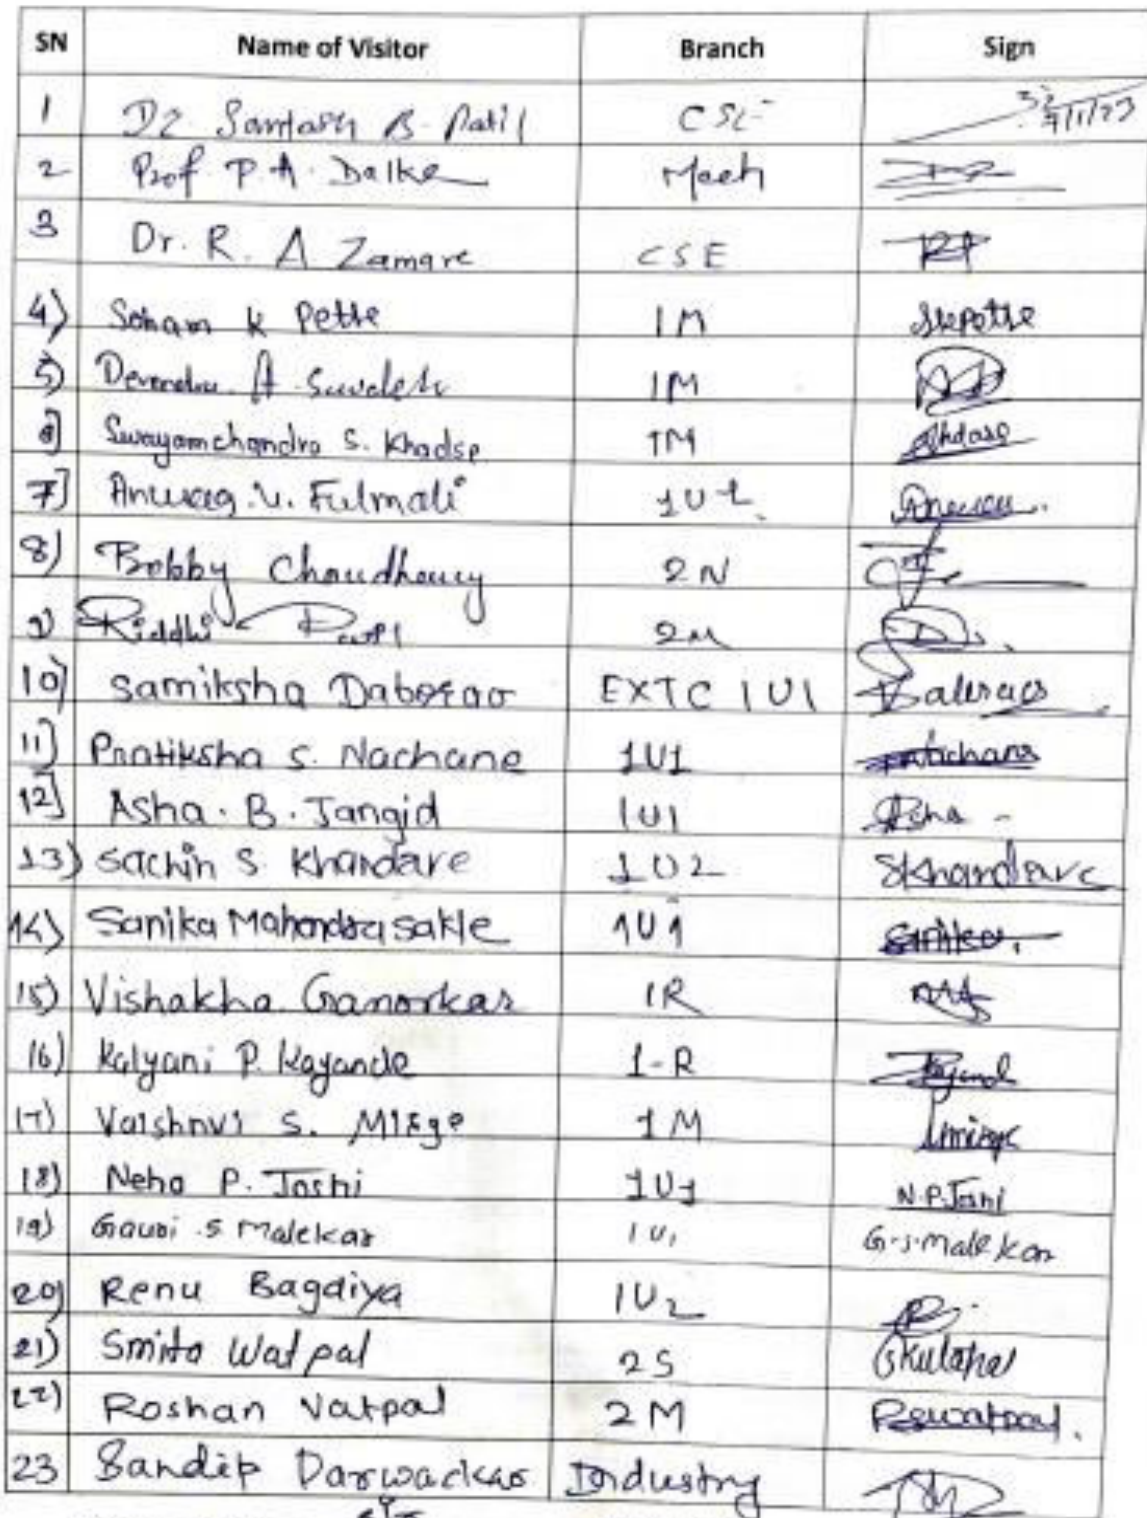 SN Name of Visitor Branch Sign
1 Dr Santosh B. Patil CSE 9/1/23
2 Prof. P. A. Dalke Mech
3 Dr. R. A Zamare CSE
4) Soham K Pethe 1M Skpethe
5) Devendra A 1M
6) Swayamchandra S. Khadse 1M
7) Anurag. V. Fulmali 1U2
8) Bobby Choudhary 2N
9) Riddhi Patil 2M
10) Samiksha Daberao EXTC 1U1
11) Pratiksha S. Nachane 1U1
12) Asha. B. Jangid 1U1 Asha -
13) Sachin S. Khandare 1U2 SKhandare
14) Sanika Mahendra sakle 1U1 Sanika.
15) Vishakha Ganorkar 1R
16) Kalyani P. Kayande 1-R
17) Vaishnvi S. Mirge 1M Smirge
18) Neha P. Joshi 1U1 N.P.Joshi
19) Gauri .S Malekar 1U1 G.S.Malekar
20) Renu Bagdiya 1U2
21) Smita Watpal 2S
22) Roshan Vatpal 2M
23 Sandip Darwadkar Industry